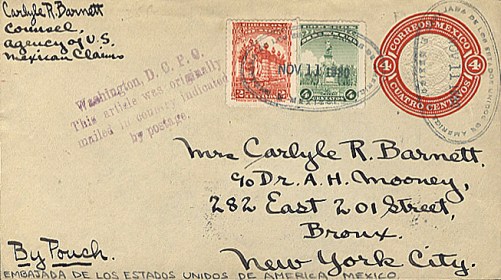 Carlyle R. Barnett
Counsel,
agency of U.S.
Mexican Claims
Washington D. C. P. O.
This article was originally
mailed in country indicated
by postage.
NOV 11
4
CORREOS MEXICO
4
4
CUATRO CENTAVOS
Mrs Carlyle R. Barnett.
c/o Dr. A. H. Mooney,
282 East 201 Street,
Bronx.
New York City.
By Pouch.
EMBAJADA DE LOS ESTADOS UNIDOS DE AMERICA MEXICO